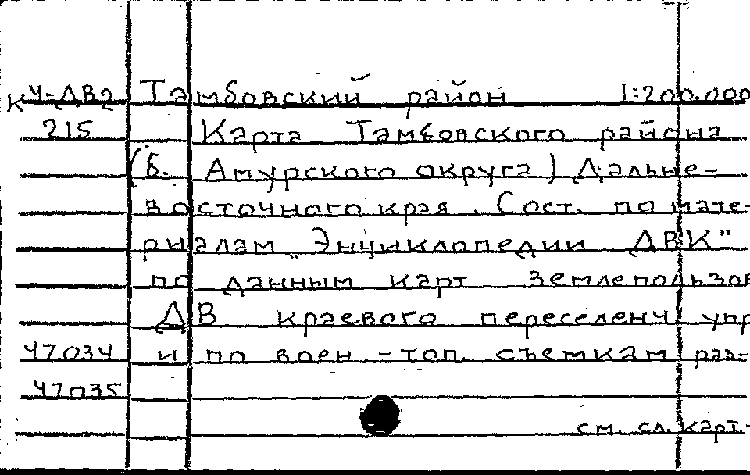 К Ч-ДВ2 Тамбовский район 1:200.000
215 Карта Тамбовского района
(б. Амурского округа) Дальне-
восточного края. Сост. по мате-
риалам „Энциклопедии ДВК"
по данным карт землепользов
ДВ краевого переселенч. упр
47034 и по воен-топ. съемкам раз-
47035
см. сл. карт.